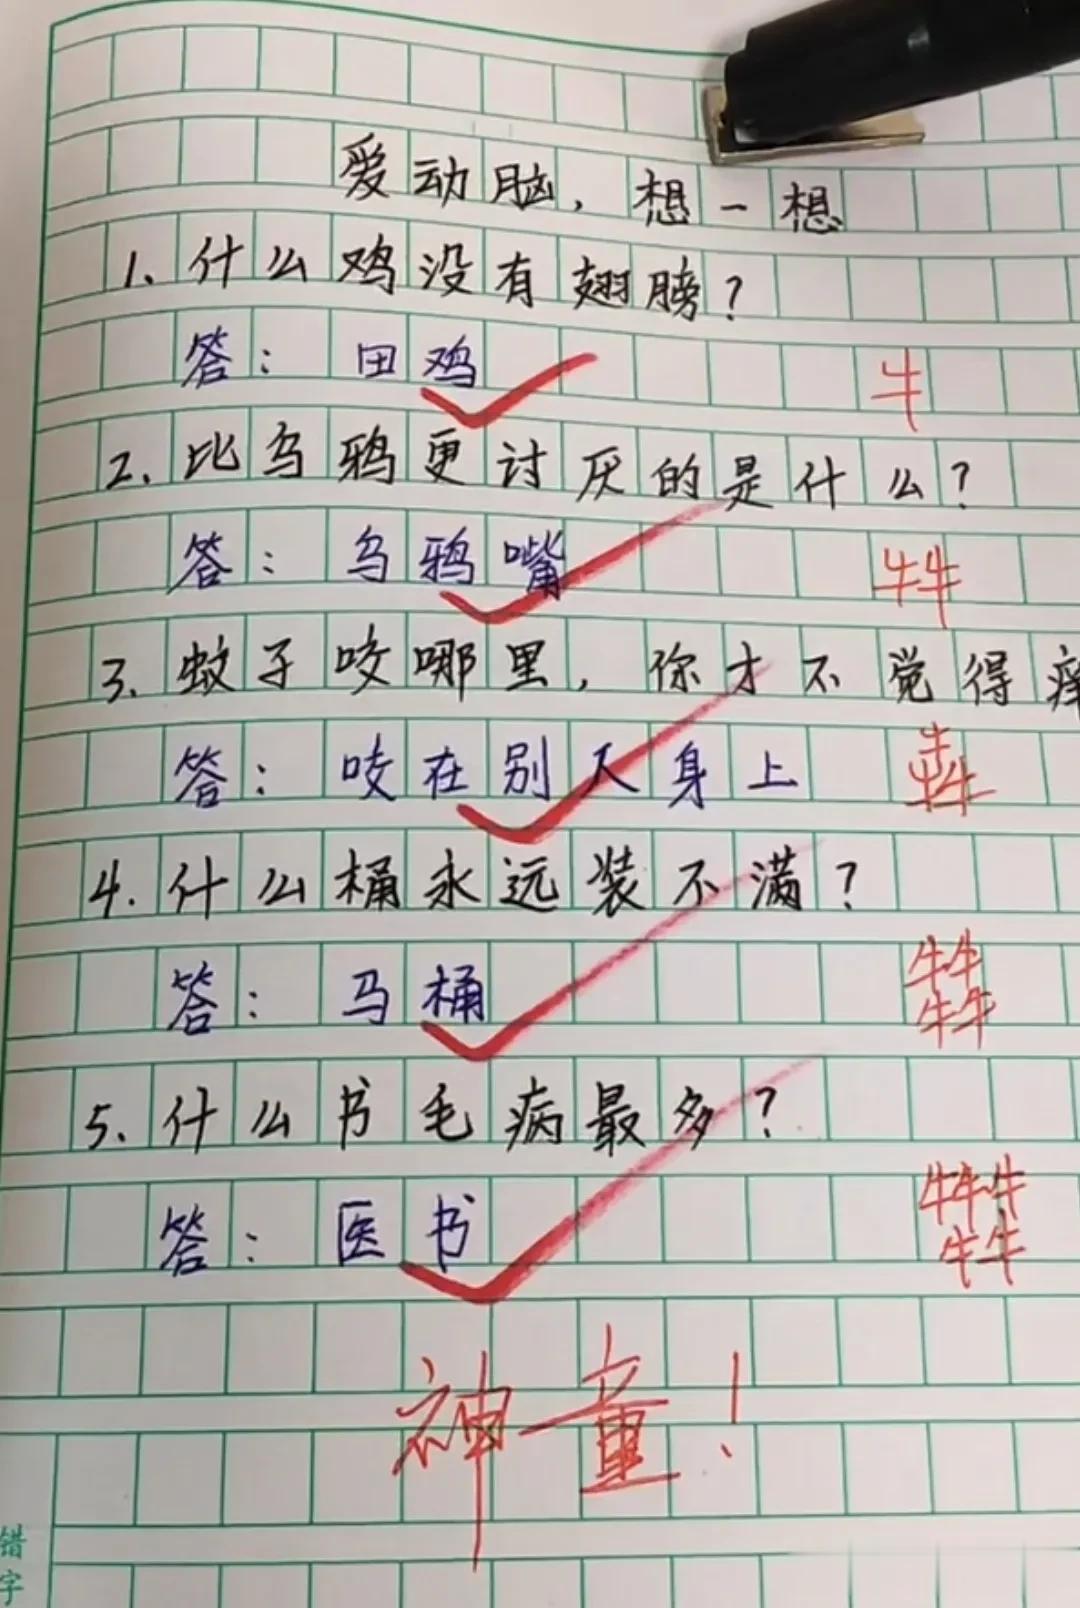 爱动脑，想一想
1、什么鸡没有翅膀？
答：田鸡
牛
2、比乌鸦更讨厌的是什么？
答：乌鸦嘴
牛牛
3、蚊子咬哪里，你才不觉得痒
答：咬在别人身上
牛
牛牛
4、什么桶永远装不满？
答：马桶
牛牛
牛牛
5、什么书毛病最多？
答：医书
牛牛牛
牛牛
神童！
错字